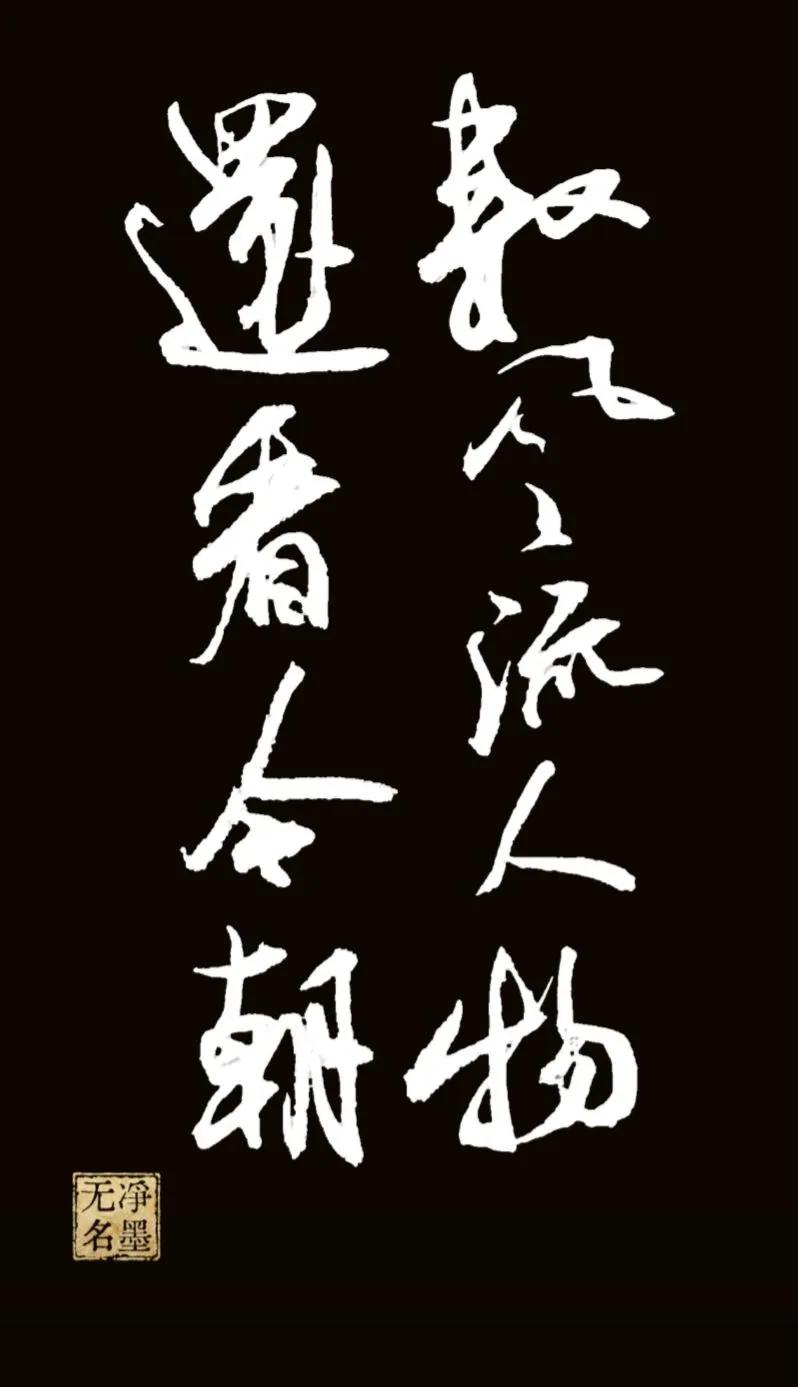 數風流人物
還看今朝
凈墨
无名